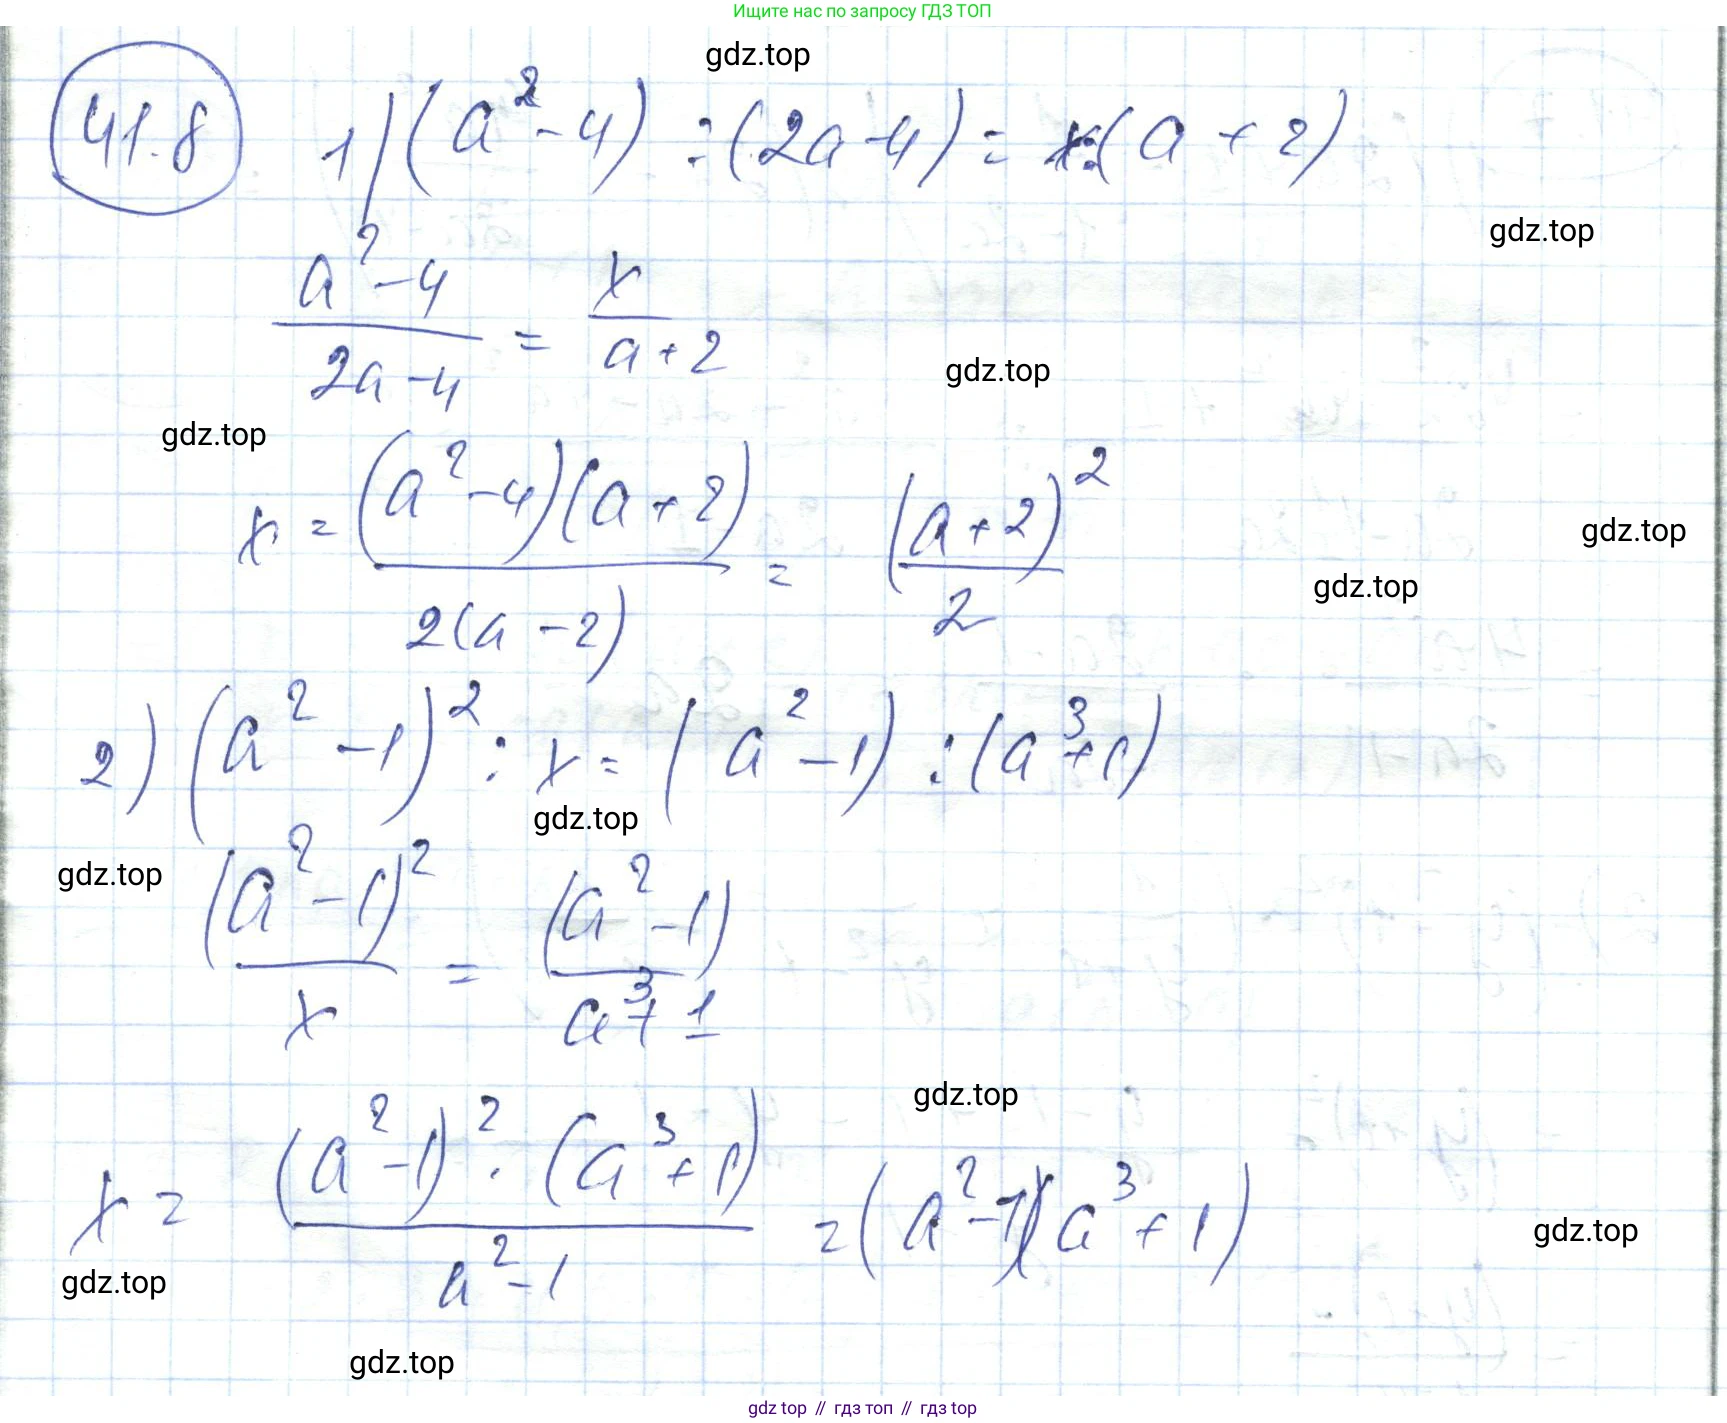 Ищите нас по запросу ГДЗ ТОП
gdz.top
41.8 1) (a² - 4) : (2a - 4) = x : (a + 2)
gdz.top
(a² - 4)/(2a - 4) = x/(a + 2)
gdz.top
gdz.top
x = (a² - 4)(a + 2)/2(a - 2) = (a + 2)²/2
gdz.top
gdz.top
2) (a² - 1)² : x = (a² - 1) : (a³ + 1)
gdz.top
gdz.top
(a² - 1)²/x = (a² - 1)/(a³ + 1)
gdz.top
x = (a² - 1)² · (a³ + 1)/(a² - 1) = (a² - 1)(a³ + 1)
gdz.top
gdz.top
gdz.top
gdz top // гдз топ // гдз top